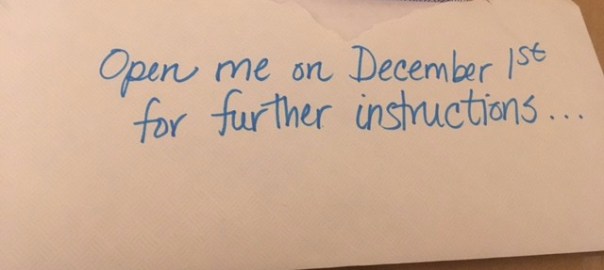 Open me on December 1st
for further instructions...